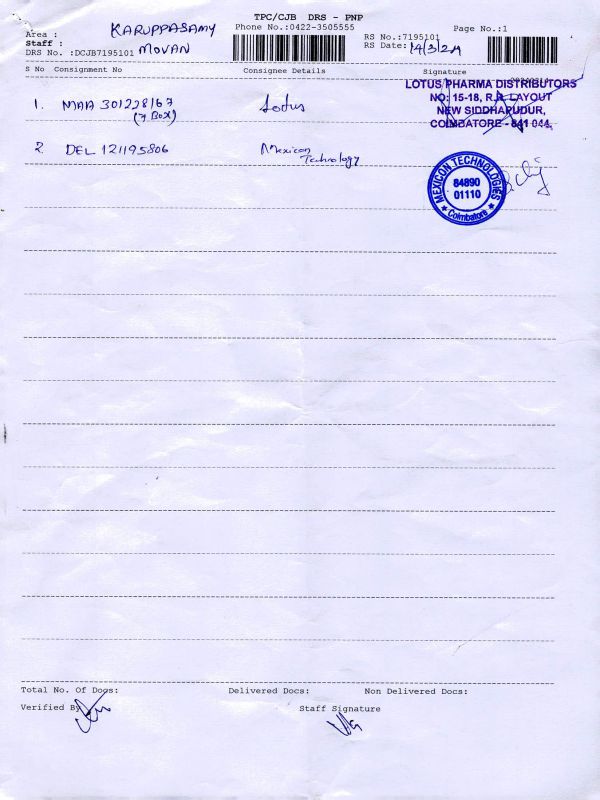 TPC/CJB DRS - PNP
Area : KARUPPASAMY Phone No.:0422-3505555 Page No.:1
Staff : MOVAN RS No.:7195101
DRS No. :DCJB7195101 RS Date: 14/3/24
S No Consignment No Consignee Details Signature
LOTUS PHARMA DISTRIBUTORS
NO: 15-18, R.R. LAYOUT
NEW SIDDHAPUDUR,
COIMBATORE - 641 044.
1. MAA 301228167 Lotus
(7 BOX)
2 DEL 121195806 Mexicon
Technology
MEXICON TECHNOLOGIES
84890
01110
★ Coimbatore ★
Total No. Of Docs: Delivered Docs: Non Delivered Docs:
Verified By Staff Signature